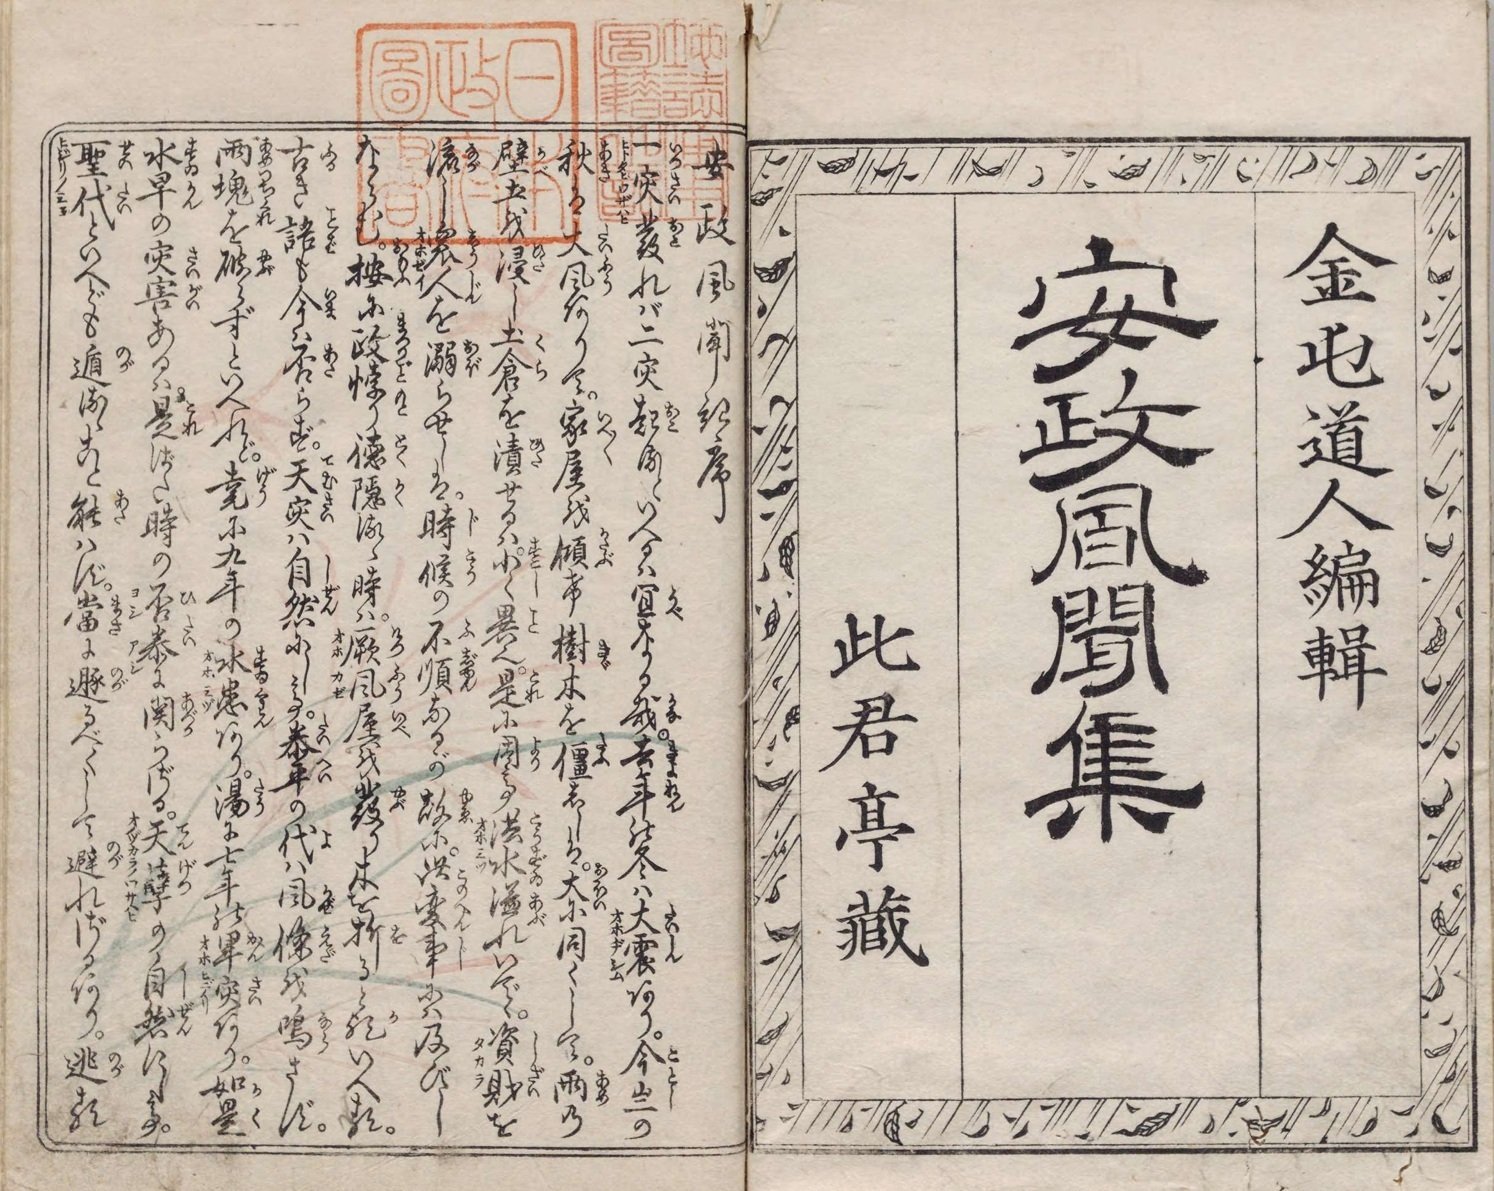 金屯道人編輯
安政風聞集
此君亭藏
安政風聞集序
一灾發れバ二灾起るといへるハ宜なる哉。去年の冬ハ大震あり。今茲の
秋は大風ありて。家屋を傾け樹木を僵しゝは。大に同くして。雨乃
壁土を浸し土倉を漬せるハ少く異へり。是に因て洪水溢れいで。資財を
流し衆人を溺らせしは。時候の不順なるが故に。此変事にハ及びし
ならむ。按に政悖り徳隠るゝ時ハ。厥風屋を發り木を折ると歟いへる。
古き語も今ハ否らず。天灾ハ自然にして。泰平の代ハ風條を鳴さず。
雨塊を破らずといへれど。堯に九年の水患あり。湯に七年の旱灾あり。如是
水旱の灾害あるハ。是はた時の否泰に関らざる。天孽の自然にして。
聖代といへども遁るゝこと能はず。當に遯るべくして避れざるあり。逃るゝ